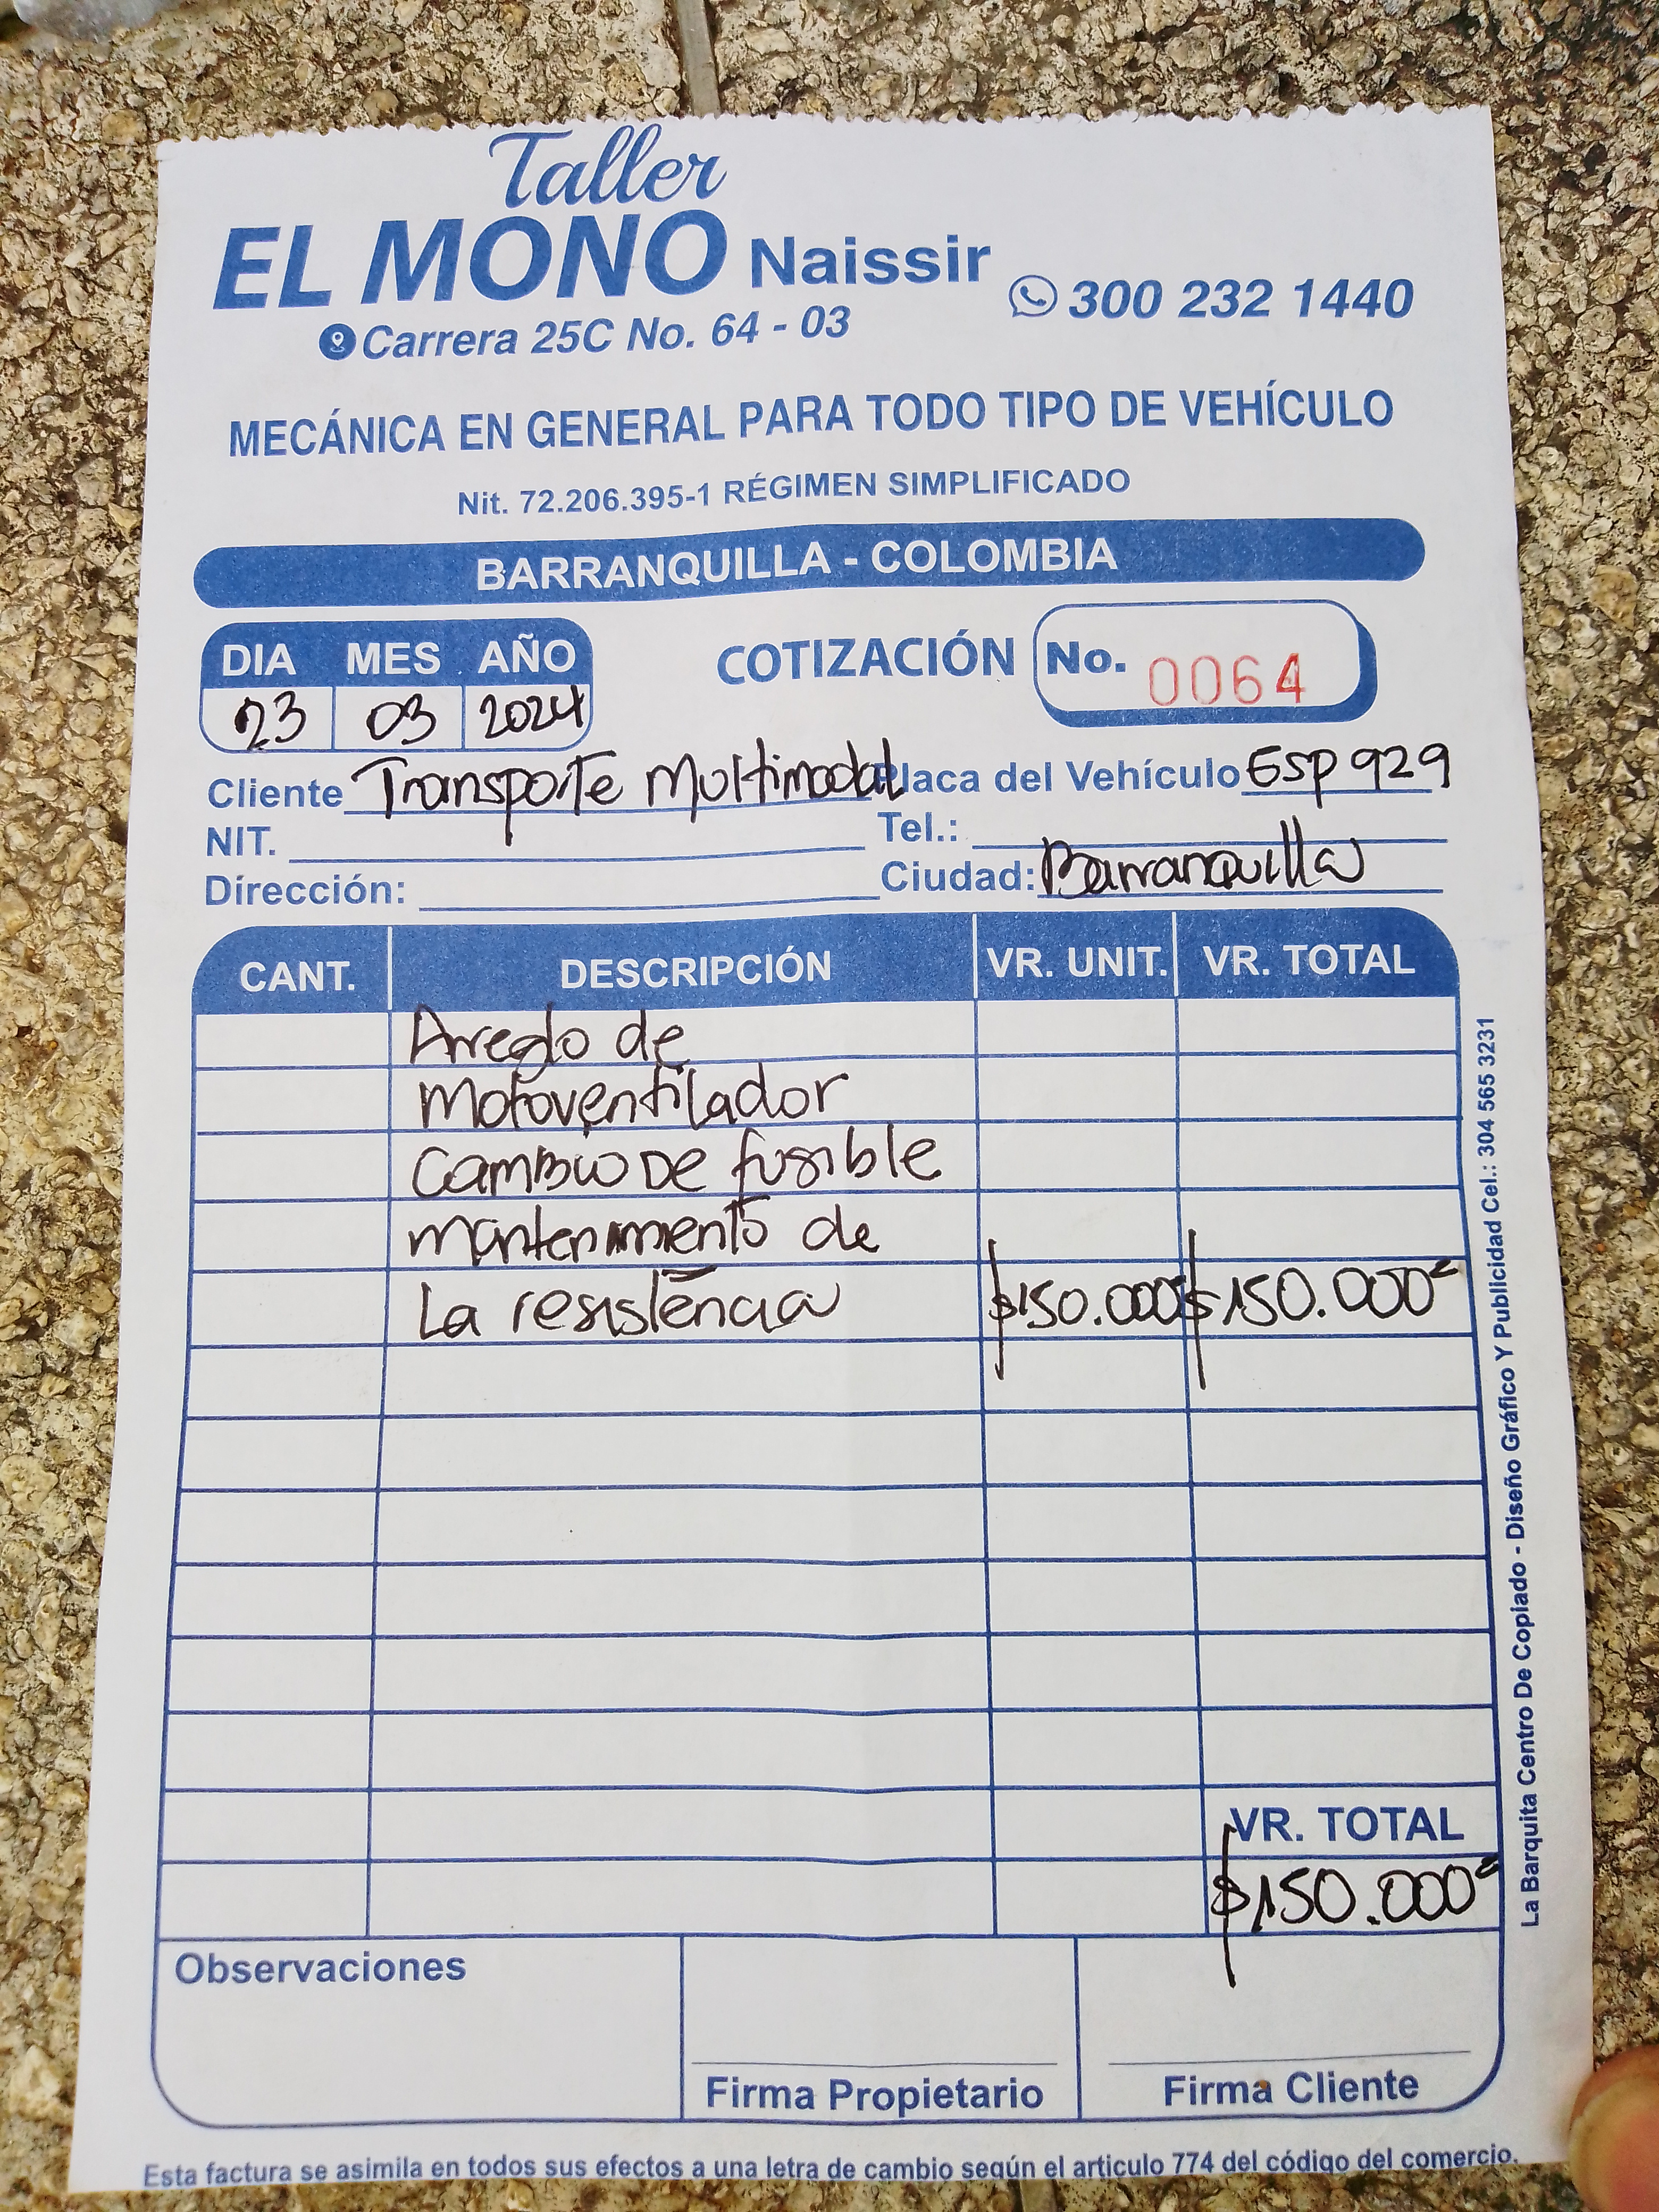 Taller
EL MONO Naissir
300 232 1440
Carrera 25C No. 64 - 03
MECÁNICA EN GENERAL PARA TODO TIPO DE VEHÍCULO
Nit. 72.206.395-1 RÉGIMEN SIMPLIFICADO
BARRANQUILLA - COLOMBIA
DIA MES AÑO
23 03 2024
COTIZACIÓN No. 0064
Cliente Transporte Multimodal Placa del Vehículo Esp 929
NIT. Tel.:
Dírección: Ciudad: Barranquilla
CANT. DESCRIPCIÓN VR. UNIT. VR. TOTAL
Arreglo de
Motoventilador
Cambio De fusible
mantenimiento de
La resistencia $150.000 $150.000=
VR. TOTAL
$150.000=
Observaciones
Firma Propietario Firma Cliente
Esta factura se asimila en todos sus efectos a una letra de cambio según el articulo 774 del código del comercio.
La Barquita Centro De Copiado - Diseño Gráfico Y Publicidad Cel.: 304 565 3231